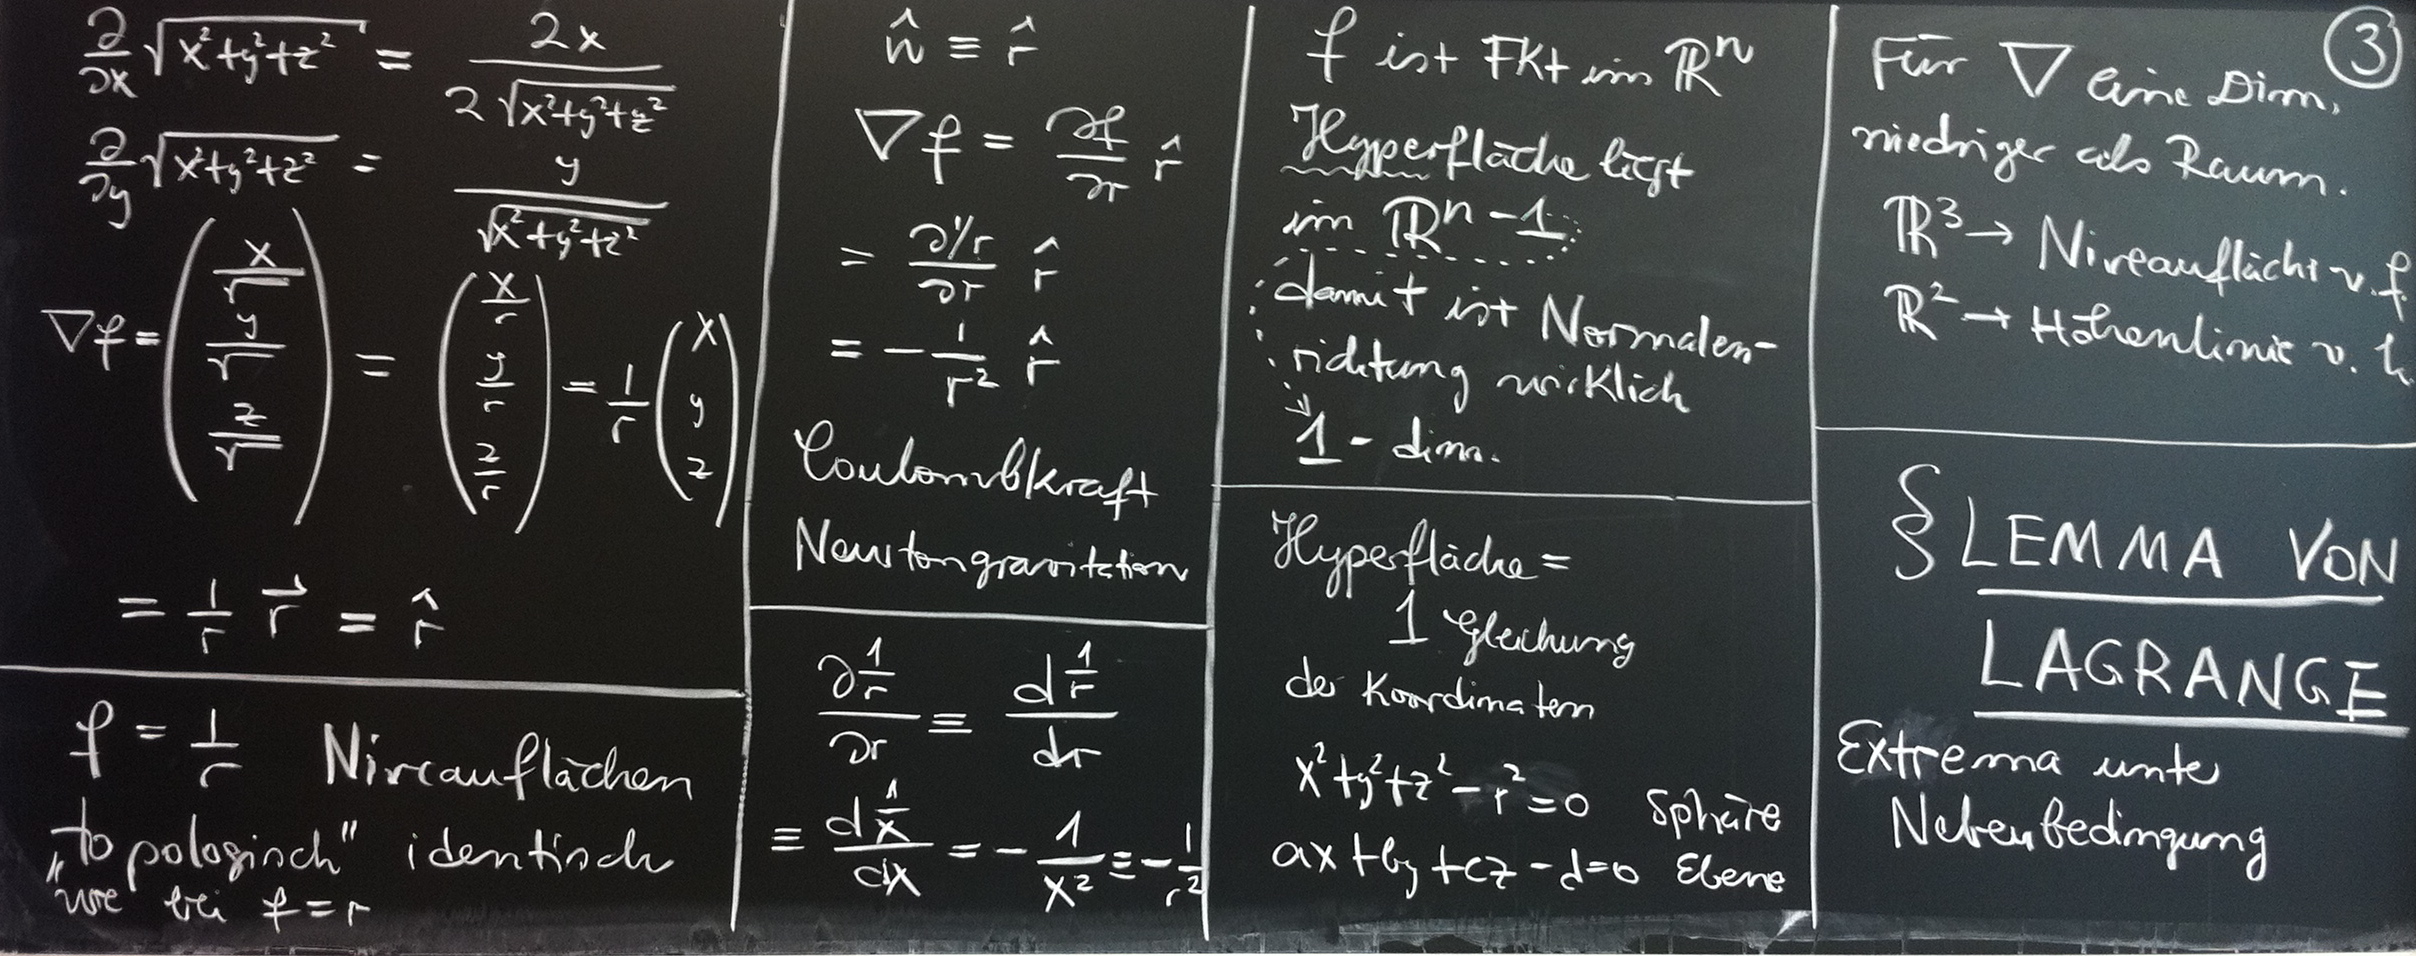 ∂/∂x √(x²+y²+z²) = 2x / (2√(x²+y²+z²))
∂/∂y √(x²+y²+z²) = y / √(x²+y²+z²)
∇f = (x/√ y/√ z/√) = (x/r y/r z/r) = 1/r (x y z)
= 1/r r⃗ = r̂
f = 1/r Niveauflächen
„topologisch" identisch
wie bei f = r
n̂ ≡ r̂
∇f = ∂f/∂r r̂
= ∂1/r / ∂r r̂
= - 1/r² r̂
Coulombkraft
Newtongravitation
∂ 1/r / ∂r ≡ d 1/r / dr
≡ d 1/x / dx = - 1/x² ≡ - 1/r²
f ist Fkt im ℝⁿ
Hyperfläche liegt
im ℝⁿ⁻¹
damit ist Normalen-
richtung wirklich
1-dim.
Hyperfläche =
1 Gleichung
der Koordinaten
x²+y²+z²-r²=0 Sphäre
ax+by+cz-d=0 Ebene
③
Für ∇ eine Dim.
niedriger als Raum.
ℝ³ → Niveaufläche v. f
ℝ² → Höhenlinie v. h
§ LEMMA VON
LAGRANGE
Extrema unter
Nebenbedingung